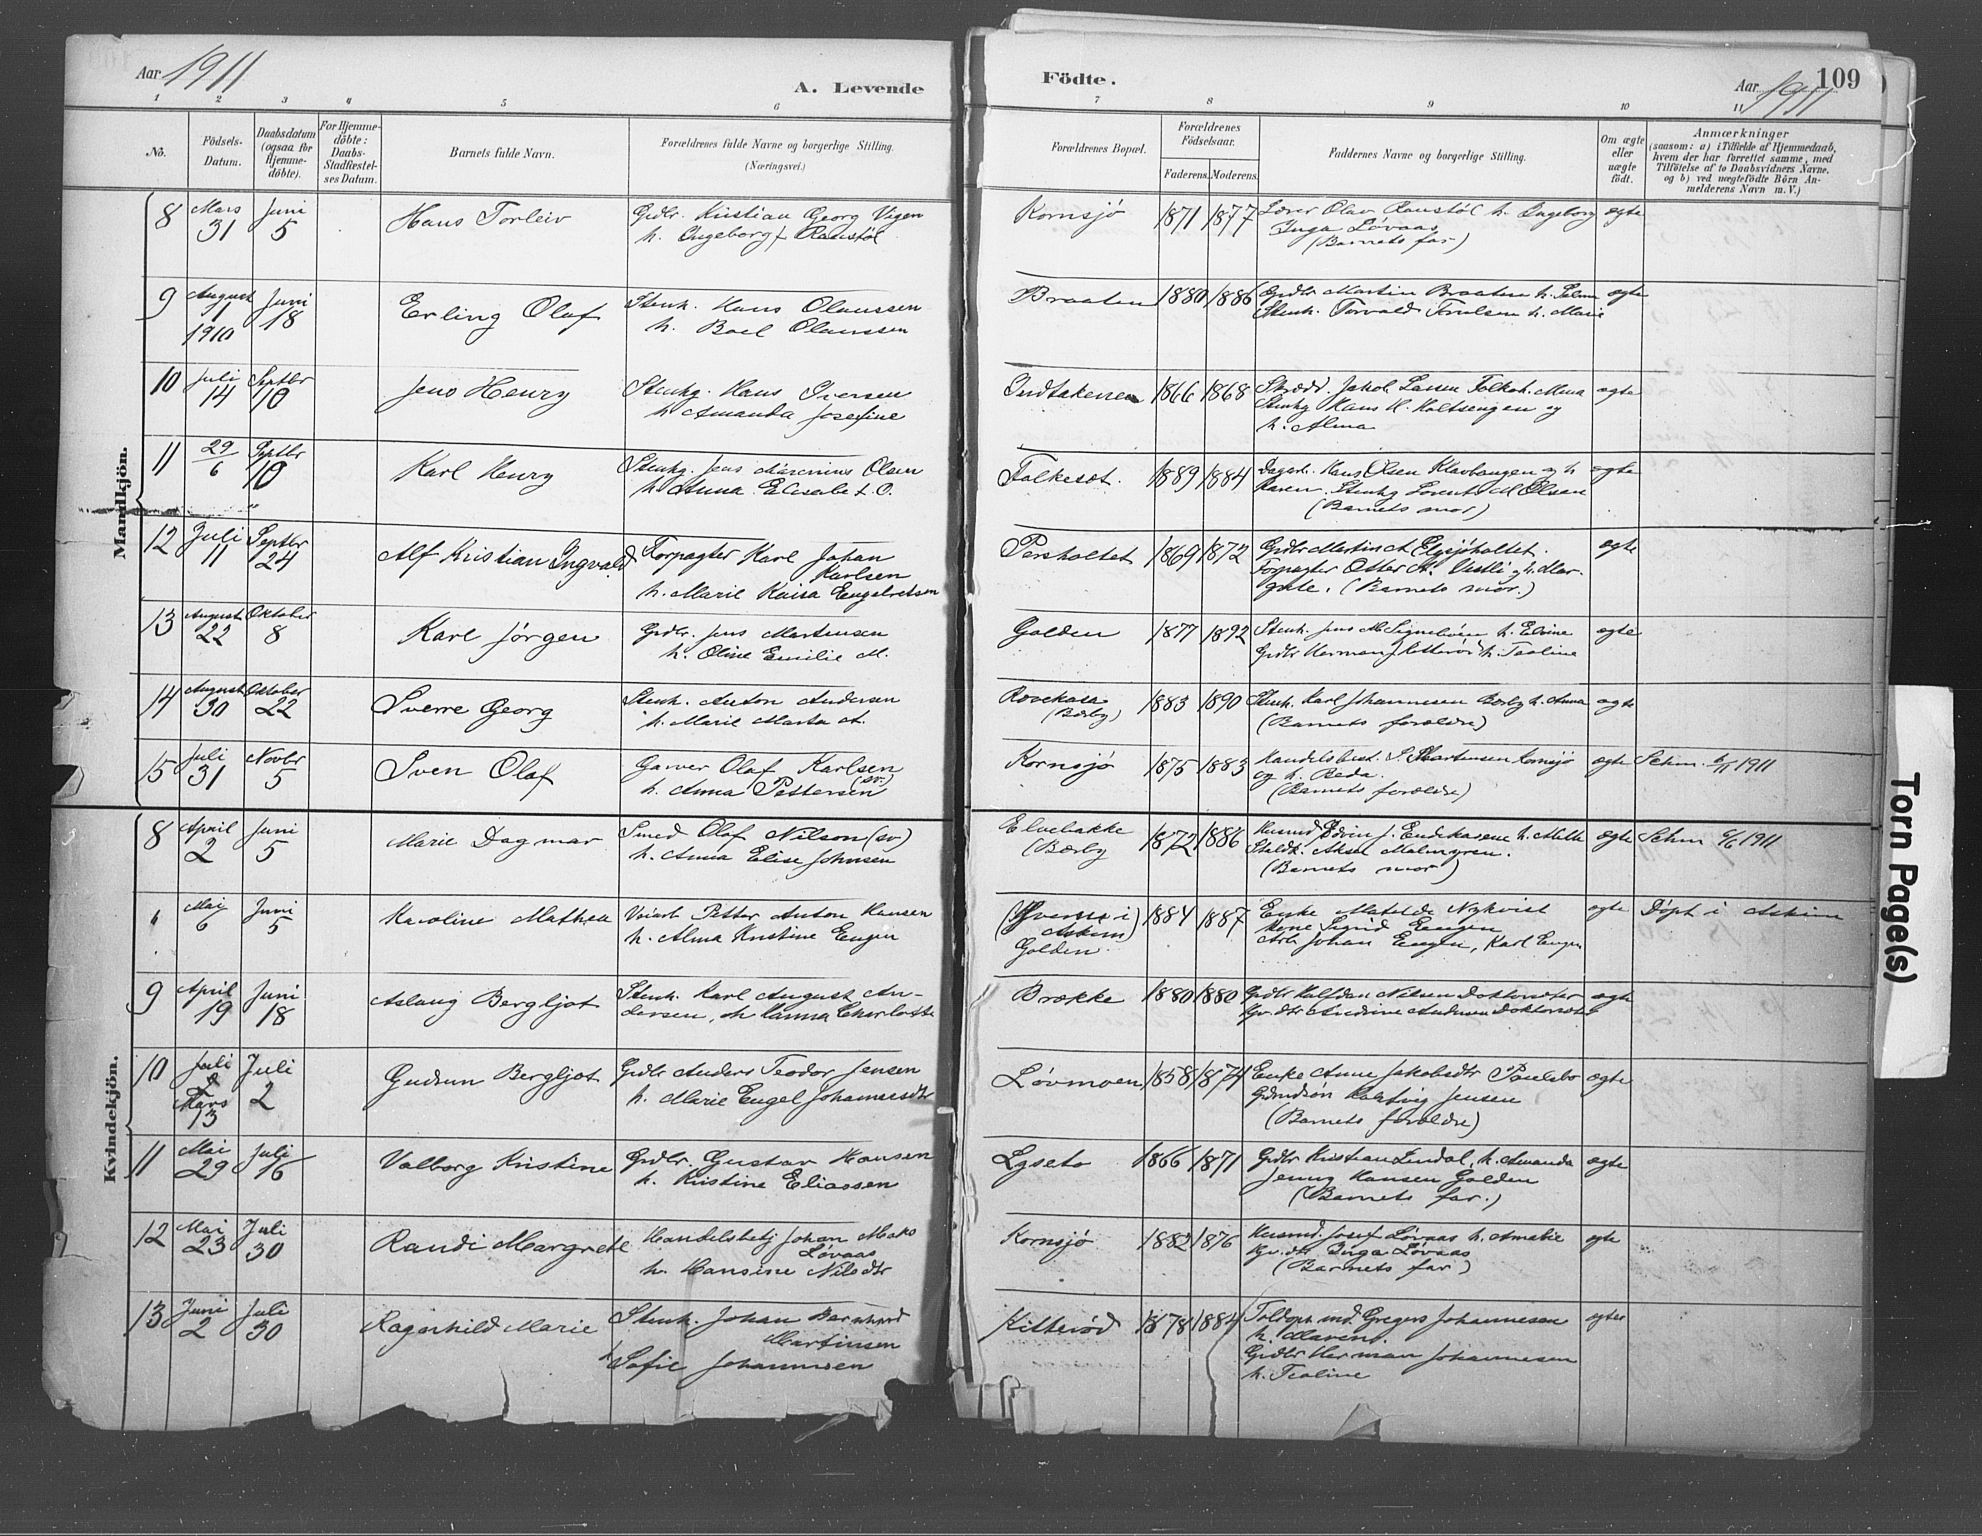 Aar 1911
A. Levende
Födte.
Aar 1911
109
1 2 3 4 5 6 7 8 9 10 11
No.
Födsels-
Datum.
Daabsdatum
(ogsaa for
Hjemme-
döbte).
For Hjemme-
döbte:
Daabs-
Stadfestel-
ses Datum.
Barnets fulde Navn.
Forældrenes fulde Navne og borgerlige Stilling.
(Næringsvei.)
Forældrenes Bopæl.
Forældrenes
Födselsaar.
Faderens. Moderens.
Faddernes Navne og borgerlige Stilling.
Om ægte
eller
uægte
födt.
Anmærkninger
(saasom: a) i Tilfælde af Hjemmedaab,
hvem der har forrettet samme, med
Tilföielse af to Daabsvidners Navne,
og b) ved uægtefödte Börn An-
melderens Navn m. V.)
Mandkjön.
8 Mars 31 Juni 5 Hans Torleiv
Grdbr. Kristian Georg Vigen
h. Ingeborg f. Ramstøl
Kornsjø 1871 1877
Lærer Olav Ramstøl h. Ingeborg
Inga Løvaas
(Barnets far)
ægte
9 August 31 1910 Juni 18 Erling Olaf
Stenh. Hans Olaussen
h. Boel Olaussen
Braaten 1880 1886
Grdbr Martin Braaten h.
Stenh. Torvald h. Marie
ægte
10 Juli 14 Septbr 10 Jens Henry
Stenhg. Hans Iversen
h. Amanda Josefine
1866 1868
Jakob Larsen
Stenhg Hans H. Holtsengen og
h. Alma
ægte
11 29/6 Septbr 10 Karl Henry
" 
Stenhg. Jens Marenius Olsen
h. Anna Elisabet O.
Folkeset. 1889 1884
Hans Olsen og h.
Karen. Stenhg Lorents M Olsen
(Barnets mor)
ægte
12 Juli 11 Septbr 24 Alf Kristian Ingvald
Forpagter Karl Johan
Karlsen
h. Marie Kaisa Engebretsen
Persholtet 1869 1872
Grdbr Martin A. Elgsjøholtet.
Forpagter Otter A. Vestli og h. Mar-
grete. (Barnets mor.)
ægte
13 August 22 Oktober 8 Karl Jørgen
Grdbr. Jens Martensen
h. Oline Emilie M.
Golden 1877 1892
Stenh. Jens M h. Elvine
Grdbr Herman J Kitterød h. Tealine
ægte
14 August 30 Oktober 22 Sverre Georg
Stenh. Anton Andersen
h. Marie Marta A.
Revekasa
(Bærby)
1883 1890
Stenh. Karl Johannesen Bærby h. Anna
(Barnets forældre)
ægte
15 Juli 31 Novbr 5 Sven Olaf
Garver Olaf Karlsen
h. Anna Pettersen (sv.)
Kornsjø 1875 1883
Handelsbest. S. Martinsen Kornsjø
og h. Beda.
(Barnets forældre)
ægte
6/11 1911
Kvindekjön.
8 April 2 Juni 5 Marie Dagmar
Smed Olaf Nilson (sv)
h. Anna Elise Johnsen
Elvebakke
(Bærby
1872 1886
Husmd Edvin J. h.
Aksel Malmgren.
(Barnets mor)
ægte
6/6 1911
Mai 6 Juni 5 Karoline Mathea
Petter Anton Hansen
h. Alma Kristine Engen
i
Askim)
Golden
1884 1887
Enke Matelde Nykvist
Kone Sigrid Engen
Arb Johan Engen, Karl Engen
ægte
Døpt i Askim
9 April 19 Juni 18 Aslaug Bergljot
Stenh. Karl August An-
dersen, h. Hanna Charlotte
Brække 1880 1880
Grdbr Halfdan Nilsen
Andersen
ægte
10 Juli 2 Mars 13 Juli 2 Gudrun Bergljot
Grdbr Anders Teodor Jensen
h. Marie Engel Johannesdtr
Løvmoen 1858 1874
Enke Anne Jakobsdtr Paulsbo
Jensen
(Barnets forældre)
ægte
11 Mai 29 Juli 16 Valborg Kristine
Grdbr. Gustav Hansen
h. Kristine Eliassen
Lyseto 1866 1871
Grdbr Kristian Lindal, h. Amanda
Jenny Hansen Golden
(Barnets far.)
ægte
12 Mai 23 Juli 30 Randi Margrete
Handelsbetj Johan Maks
Løvaas
h. Hansine Nilsdtr
Kornsjø 1882 1876
Husmd. Josef Løvaas h. Amalie
Inga Løvaas
(Barnets far)
ægte
13 Juni 2 Juli 30 Ragnhild Marie
Stenh. Johan Bernhard
Martinsen
h Sofie Johannesen
Kitterød 1878 1884
Gregers Johannesen
h.
Grdbr Herman Johannesen
h. Tealine
ægte
Torn Page(s)